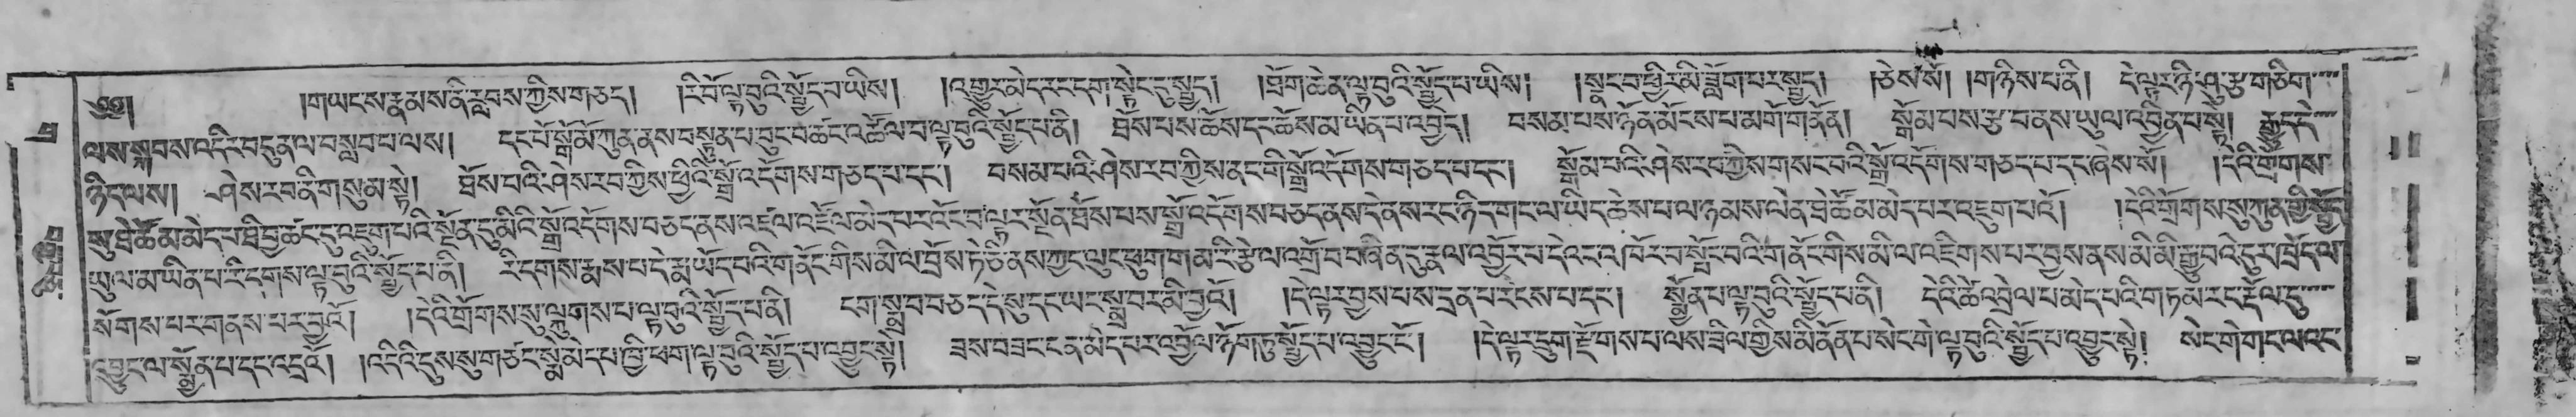 ༄༅། །གཡང་ས་རྣམས་ནི་རླབས་ཀྱིས་གཅད། །རི་བོ་ལྟ་བུའི་སྤྱོད་པ་ཡིས། །འགྱུར་མེད་རང་དག་སྟེང་དུ་སྤྱད། །ཐོག་ཆེན་ལྟ་བུའི་སྤྱོད་པ་ཡིས། །སྣང་བ་ཕྱིར་མི་ཟློག་པར་སྤྱད། །ཅེས་སོ། །གཉིས་པ་ནི། དེ་ལྟར་ཉི་ཤུ་རྩ་གཅིག་
ལས་སྐབས་འདིར་བདུན་ལ་བསླབ་པ་ལས། དང་པོ་སྒྲོ་མོ་ཀུན་ནས་བསྟུན་པ་བུང་བ་ཚང་འཚོལ་བ་ལྟ་བུའི་སྤྱོད་པ་ནི། ཐོས་པས་ཆོས་དང་ཆོས་མ་ཡིན་པ་འབྱེད། བསམ་པས་ཉོན་མོངས་པ་མགོ་གནོན། སྒོམ་པས་རྩ་བ་ནས་ཡུལ་འབྱིན་པ་སྟེ། རྒྱུད་དེ་
ཉིད་ལས། ཤེས་རབ་ནི་གསུམ་སྟེ། ཐོས་པའི་ཤེས་རབ་ཀྱིས་ཕྱིའི་སྒྲོ་འདོགས་གཅད་པ་དང་། བསམ་པའི་ཤེས་རབ་ཀྱིས་ནང་གི་སྒྲོ་འདོགས་གཅད་པ་དང་། སྒོམ་པའི་ཤེས་རབ་ཀྱིས་གསང་བའི་སྒྲོ་འདོགས་གཅད་པ་དང་ཞེས་སོ། །དེའི་གྲོགས་
སུ་ཐེ་ཚོམ་མེད་པ་ཐི་བྱ་ཚང་དུ་འཇུག་པའི་སྔོན་དུ་མིའི་སྒྲོ་འདོགས་བཅད་ནས་འཛོལ་འཛོལ་མེད་པར་འོང་བ་ལྟར་སྔོན་ཐོས་པས་སྒྲོ་འདོགས་བཅད་ནས་དེ་ནས་རང་ཉིད་གང་ལ་ཡིད་ཆེས་པ་ལ་ཉམས་ལེན་ཐེ་ཚོམ་མེད་པར་འཇུག་པའོ། །དེའི་གྲོགས་སུ་ཀུན་གྱི་སྤྱོད་
ཡུལ་མ་ཡིན་པ་རི་དགས་ལྟ་བུའི་སྤྱོད་པ་ནི། རི་དགས་རྨས་པ་དེ་རྨ་ཡོད་པའི་གནོང་གིས་མི་ལ་བྲོས་ཏེ་ཅི་ནས་ཀྱང་ལུང་ཕུག་གམ་རི་རྩེ་ལ་འགྲོ་བ་བཞིན་དུ་རྣལ་འབྱོར་པ་དེ་འང་འཁོར་བ་སྤོང་བའི་གནོང་གིས་མི་ལ་འཇིགས་པར་བྱས་ནས་མི་མི་རྒྱུ་བའི་དུར་ཁྲོད་ལ་
སོགས་པར་གནས་པར་བྱའོ། །དེའི་གྲོགས་སུ་ལྐུགས་པ་ལྟ་བུའི་སྤྱོད་པ་ནི། ངག་སྨྲ་བ་བཅད་དེ་སུ་དང་ཡང་སྨྲ་བར་མི་བྱའོ། །དེ་ལྟར་བྱས་པས་དྲན་པ་རངས་པ་དང་། སྨྱོན་པ་ལྟ་བུའི་སྤྱོད་པ་ནི། དེའི་ཚེ་འབྲེལ་པ་མེད་པའི་གཏམ་རང་རྡོལ་དུ་
འབྱུང་ལ་སྨྱོན་པ་དང་འདྲའོ། །འདིའི་དུས་སུ་གཙང་སྨེ་མེད་པ་ཁྱི་ཕག་ལྟ་བུའི་སྤྱོད་པ་འབྱུང་སྟེ། ཟས་བཟང་ངན་མེད་པར་འབྱོལ་ཉོག་ཏུ་སྤྱོད་པ་འབྱུང་ངོ། །དེ་ལྟར་དྲུག་རྫོགས་པ་ལས་ཟིལ་གྱིས་མི་ནོན་པ་སེང་གེ་ལྟ་བུའི་སྤྱོད་པ་འབྱུང་སྟེ། སེང་གེ་གང་ལ་འང་